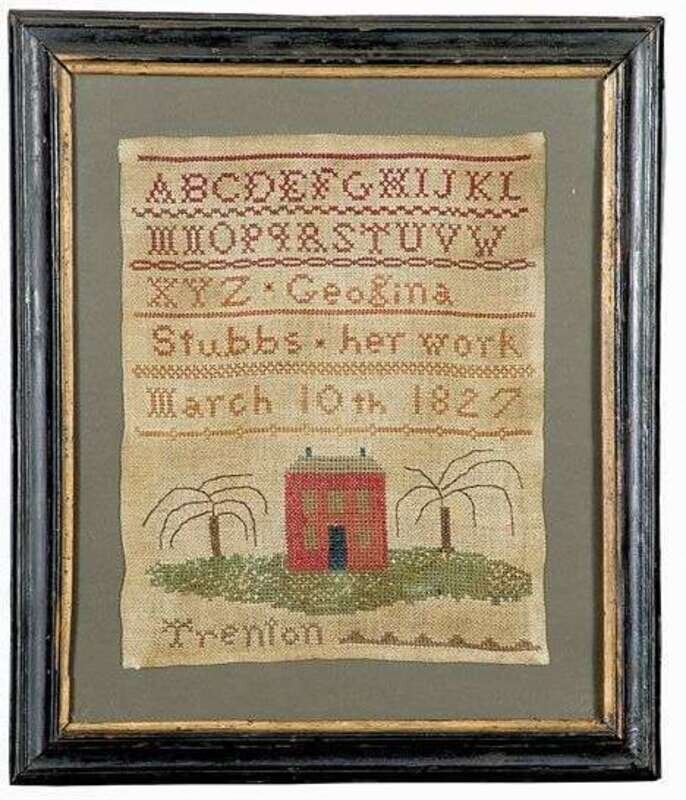 ABCDEFGHIJKL
MNOPQRSTUVW
XYZ * Geogina
Stubbs * her work
March 10th 1827
Trenton